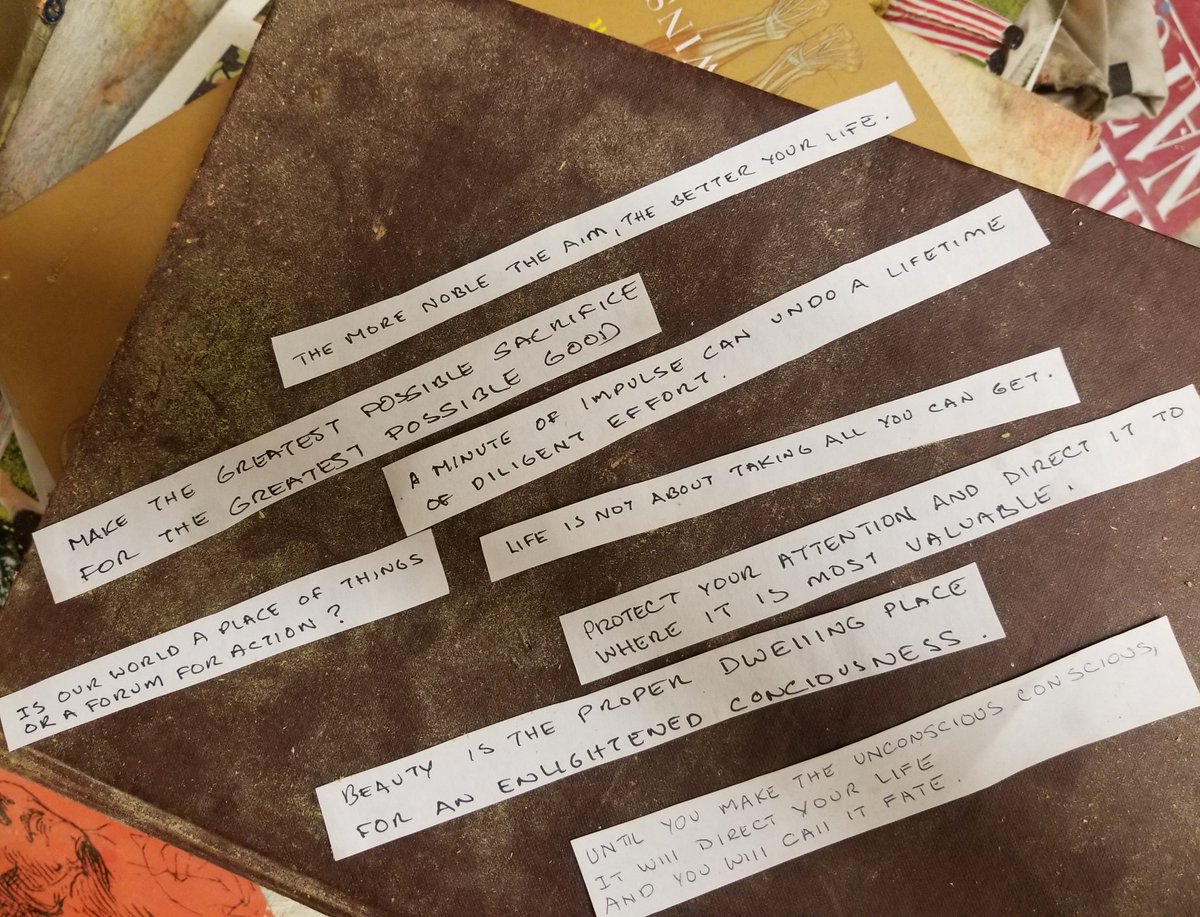 THE MORE NOBLE THE AIM, THE BETTER YOUR LIFE.
MAKE THE GREATEST POSSIBLE SACRIFICE
FOR THE GREATEST POSSIBLE GOOD
A MINUTE OF IMPULSE CAN UNDO A LIFETIME
OF DILIGENT EFFORT.
LIFE IS NOT ABOUT TAKING ALL YOU CAN GET.
IS OUR WORLD A PLACE OF THINGS
OR A FORUM FOR ACTION?
PROTECT YOUR ATTENTION AND DIRECT IT TO
WHERE IT IS MOST VALUABLE.
BEAUTY IS THE PROPER DWELLING PLACE
FOR AN ENLIGHTENED CONCIOUSNESS.
UNTIL YOU MAKE THE UNCONSCIOUS CONSCIOUS,
IT WILL DIRECT YOUR LIFE
AND YOU WILL CALL IT FATE.